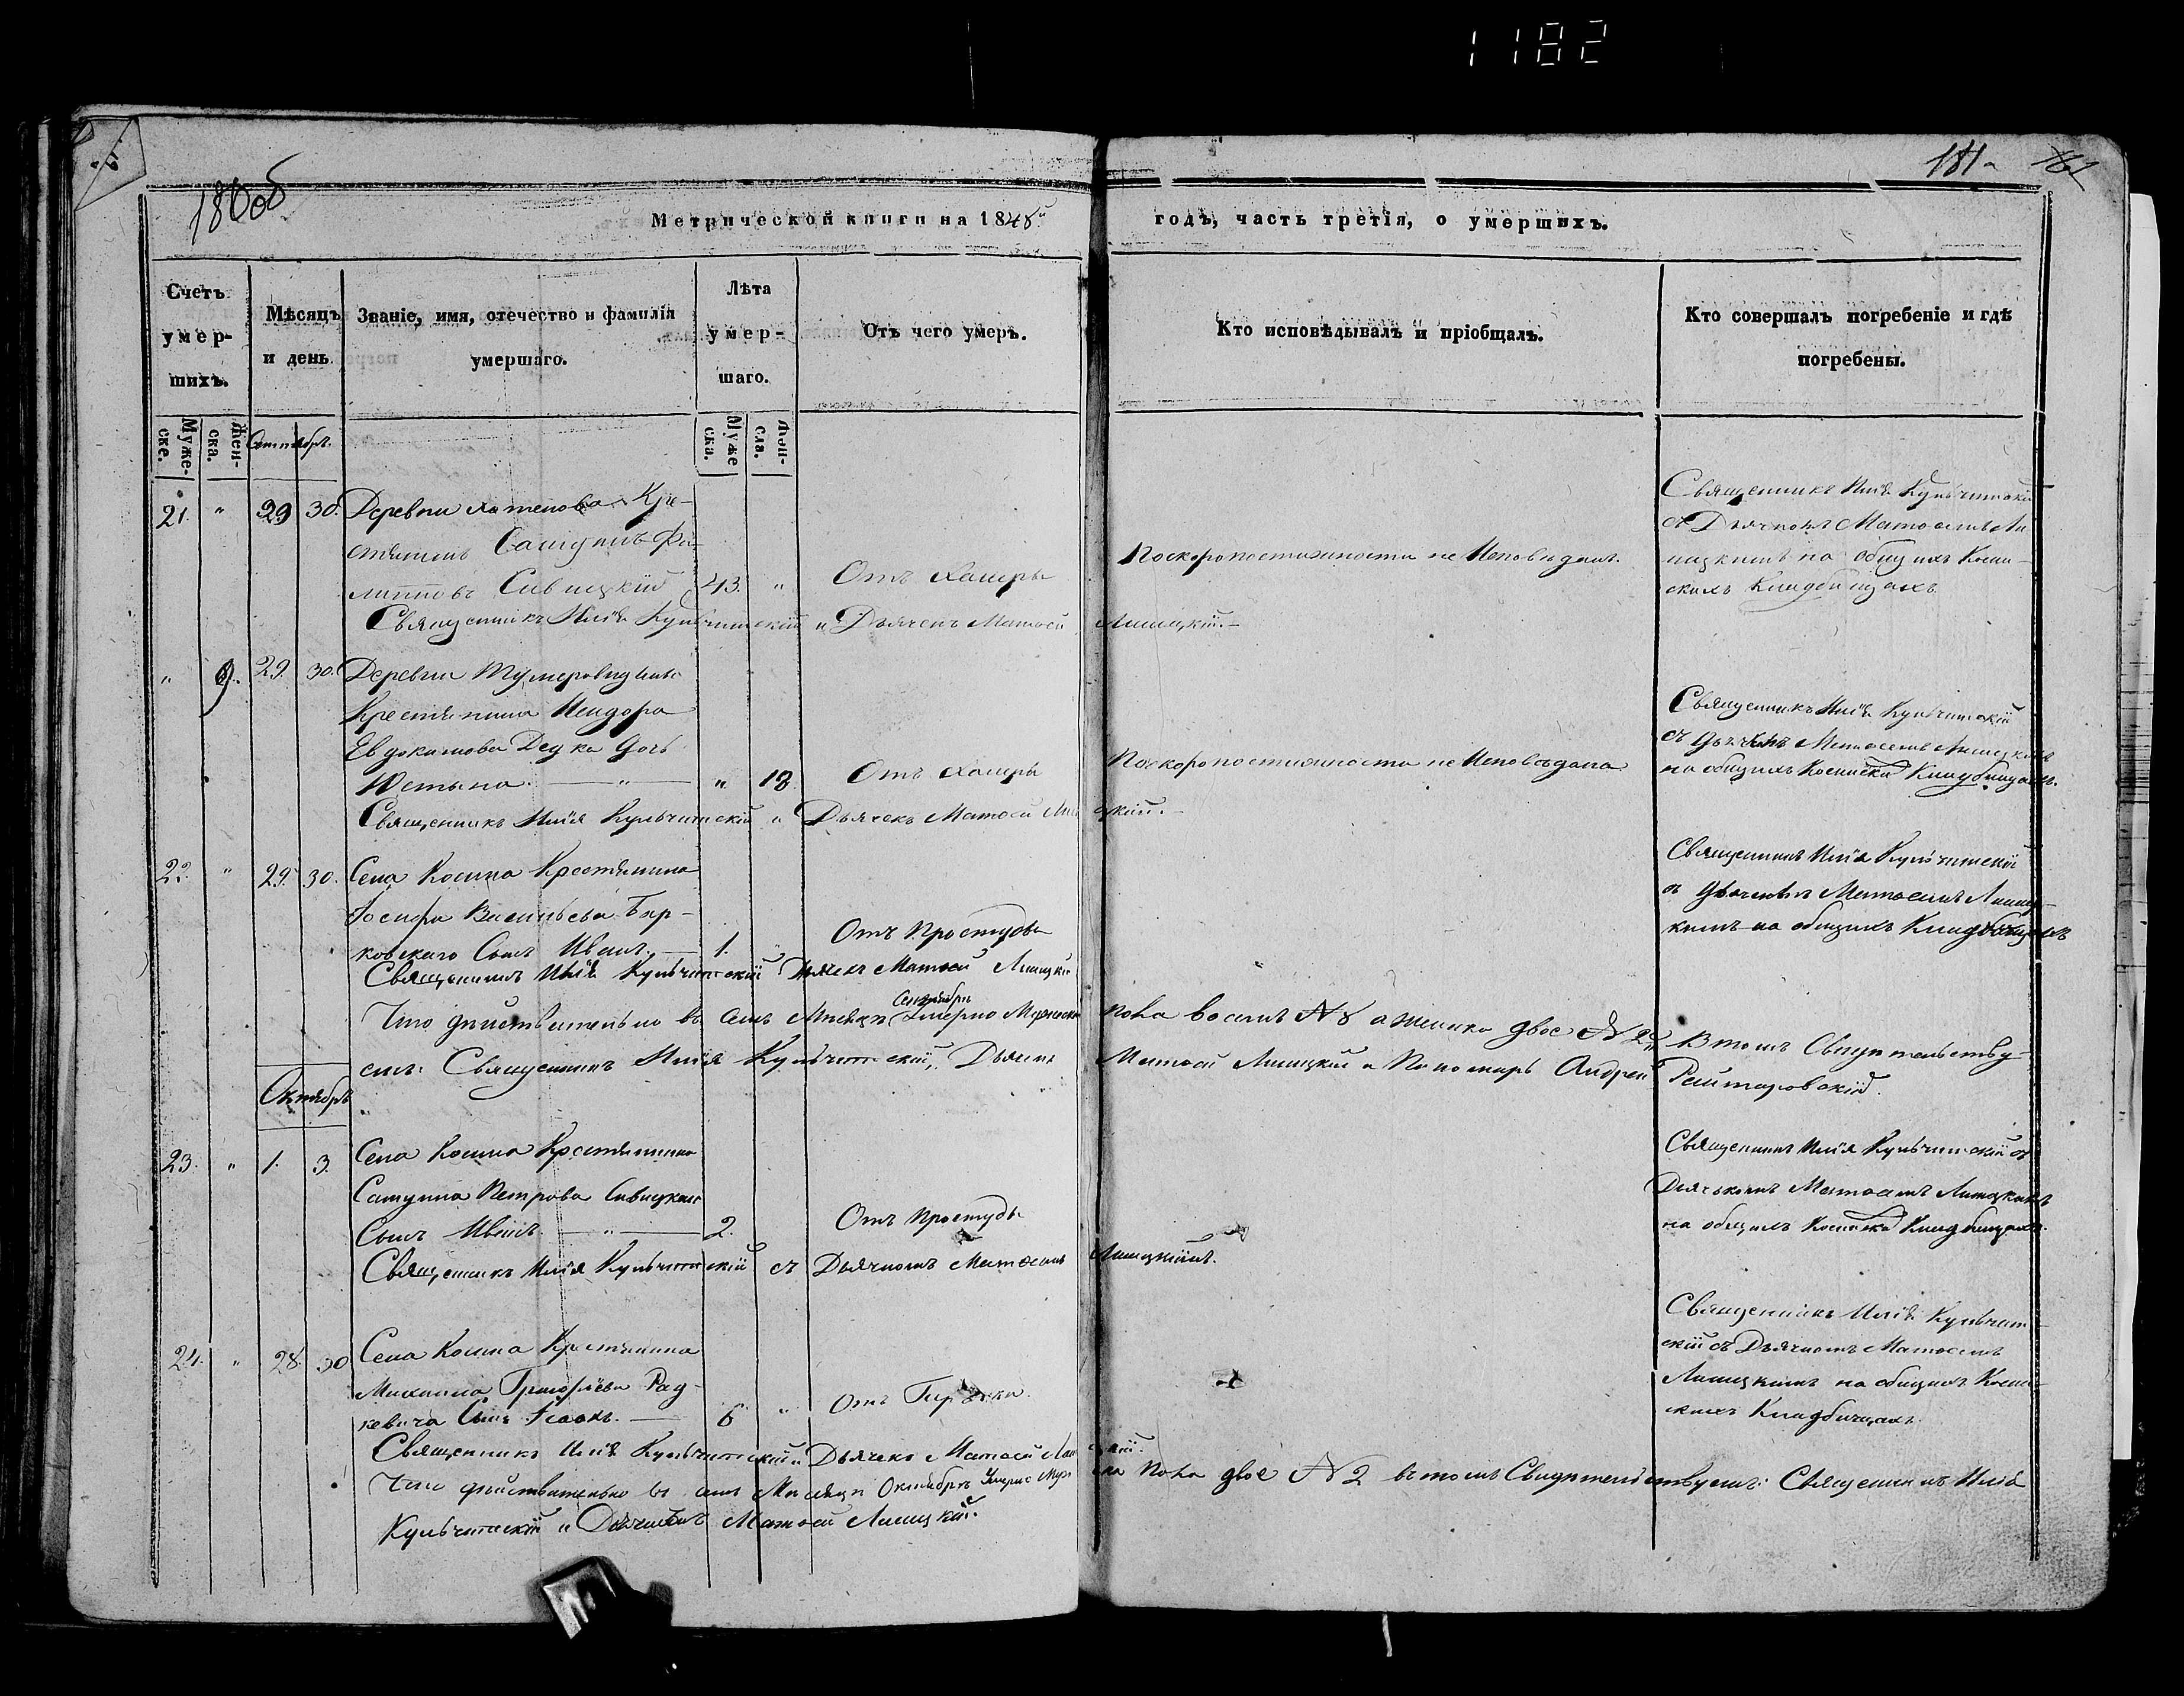 1182
180об
181
Метрической книги на 1848й годъ, часть третія, о умершихъ.
Счетъ умер- шихъ.
Мѣсяцъ и день
Званіе, имя, отечество и фамилія умершаго.
Лѣта умер- шаго.
Отъ чего умеръ.
Кто исповѣдывалъ и пріобщалъ.
Кто совершалъ погребеніе и гдѣ погребены.
Муже- ске.
Жен- ска.
Сентябрь.
Муже ска.
21. " 29 30. Деревни Кре-
стянинъ Фи-
липповъ Сивицкій 43. " Отъ Холеры
Поскоропостижности не Исповѣданъ.
Священникъ Илія Кульчитскій
съ Дьячкомъ Матѳеемъ Ли-
сицкимъ на общихъ Косин-
скихъ Кладбищахъ
Священникъ Илія Кульчитскій и Дьячекъ Матѳей Лисицкій.
" 9. 29. 30. Деревни
Крестянина Исидора
Евдокимова дочь
Юстына. " 13 Отъ Холеры
Поскоропостижности не Исповѣдана
Священникъ Илія Кульчитскій
съ Дьячкомъ Матѳеемъ Лисицкимъ
на общихъ Косински Кладбищахъ.
Священникъ Илія Кульчитскій и Дьячекъ Матѳей Лисицкій.
22. " 29. 30. Села Косина Крестянина
Іосифа Васильева Бир-
ковскаго Сынъ Иванъ. 1. " Отъ Простуды
Священникъ Илія Кульчитскій
съ Дьячкомъ Матѳеемъ Лисиц-
кимъ на общихъ Кладбищахъ
Священникъ Илія Кульчитскій Дьячекъ Матѳей Лисицкій
Что дѣйствительно въ семъ Мѣсяцѣ Сентябрѣ Умерло Мужеска пола восемъ № 8 а женска двое № 2 Втомъ Свидѣтельству-
емъ: Священникъ Илія Кульчитскій, Дьячекъ Матѳей Лисицкій и Пономарь Андрей Рейтаровскій.
Октябрь
23. " 1. 3. Села Косина Крестянина
Петрова Сивицкаго
Сынъ Иванъ. " 2. Отъ Простуды
Священникъ Илія Кульчитскій съ
Дьячкомъ Матѳеемъ Лисицкимъ
на общихъ Косински Кладбищахъ.
Священникъ Илія Кульчитскій съ Дьячкомъ Матѳеемъ Лисицкіимъ.
24. " 28. 30 Села Косина Крестянина
Михаила Григорьева Рад-
кевича Сынъ Ісаакъ. 6 " Отъ
Священникъ Илія Кульчит-
скій съ Дьячкомъ Матѳеемъ
Лисицкимъ на общихъ Косин-
скихъ Кладбищахъ.
Священникъ Илія Кульчитскій и Дьячекъ Матѳей Лисицкій.
Что дѣйствительно въ семъ Мѣсяцѣ Октябрѣ Умерло Мужеска Пола двое № 2 втомъ Свидѣтельствуемъ: Священникъ Илія
Кульчитскій и Дьячекъ Матѳей Лисицкій.